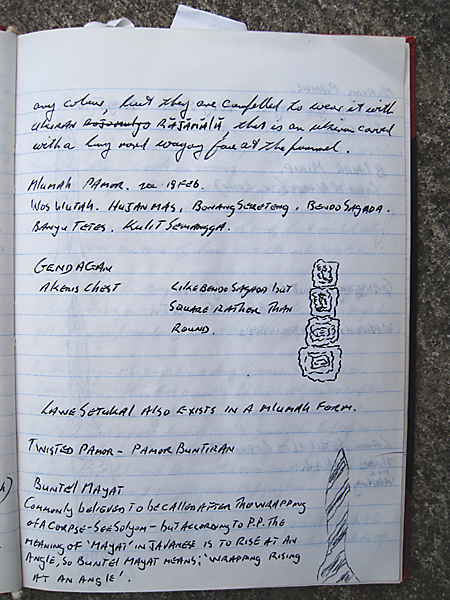 any colour, but they are compelled to wear it with
ukiran RAJAMALA that is an ukiran carved
with a long nosed wayang face at the pummel.
MLUMAH PAMOR. 18 FEB.
WOS WUTAH. HUJAN MAS, BONANG SERETENG, BENDO SAGADA.
BANYU TETES, KULIT SEMANGGA.
GENDAGAN
A KERIS CHEST
LIKE BENDO SAGADA BUT
SQUARE RATHER THAN
ROUND.
LAWE SETUKAL ALSO EXISTS IN A MLUMAH FORM.
TWISTED PAMOR - PAMOR BUNTIRAN
BUNTEL MAYAT
COMMONLY BELIEVED TO BE CALLED AFTER THE WRAPPING
OF A CORPSE - SEE SOLYOM - BUT ACCORDING TO P.P. THE
MEANING OF 'MAYAT' IN JAVANESE IS TO RISE AT AN
ANGLE, SO BUNTEL MAYAT MEANS; 'WRAPPING RISING
AT AN ANGLE'.